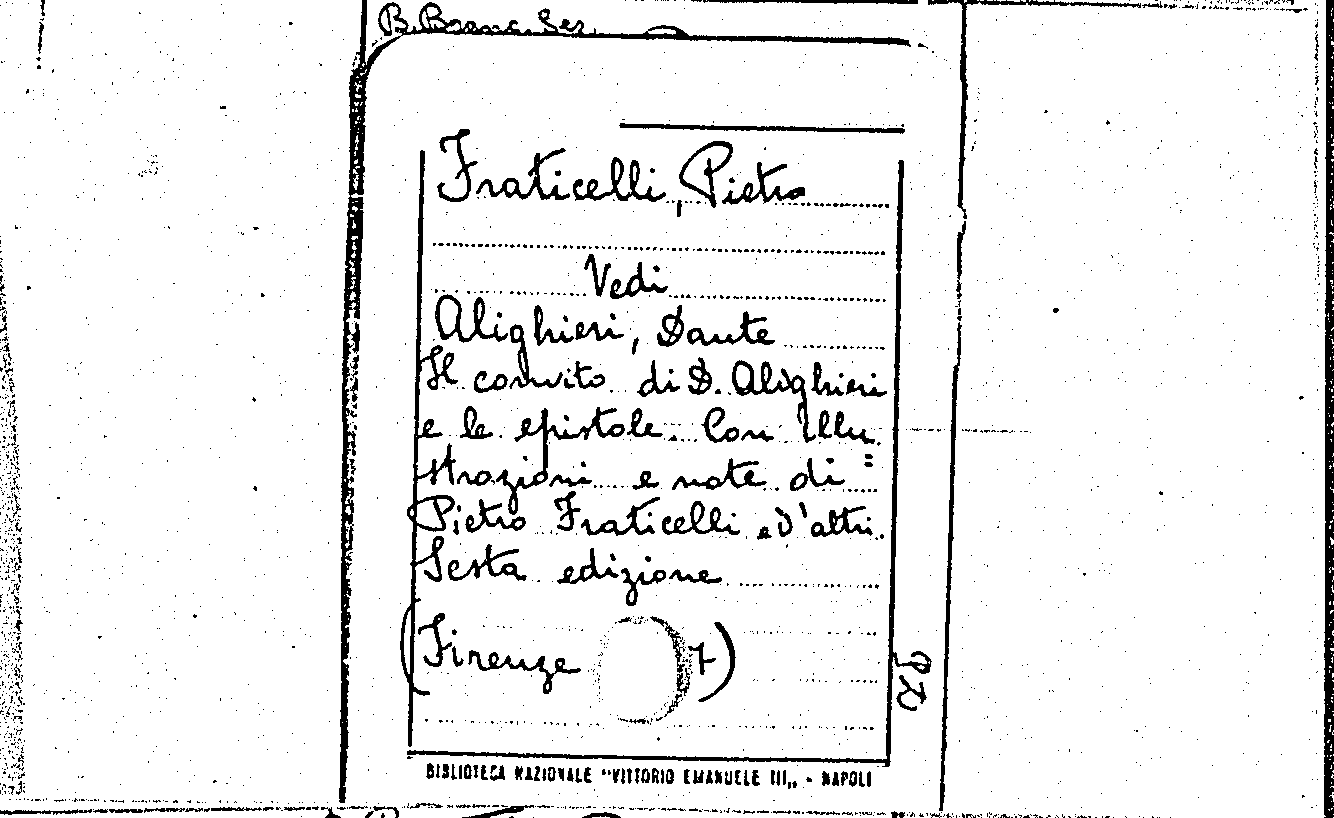 Fraticelli, Pietro
Vedi
Alighieri, Dante
Il convito di D. Alighieri
e le epistole. Con Illu=
strazioni e note di
Pietro Fraticelli e d'altri.
Sesta edizione
(Firenze 7)
BIBLIOTECA NAZIONALE "VITTORIO EMANUELE III„ - NAPOLI